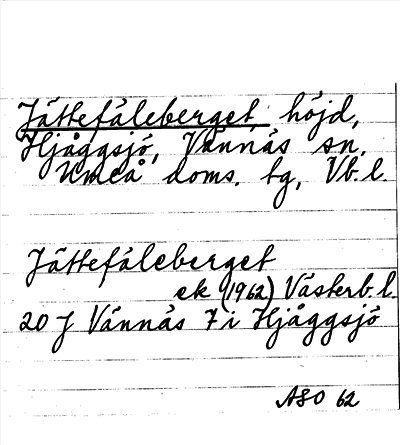 Jättefäleberget höjd,
Hjåggsjö, Vännäs sn.
Umeå doms. tg, Vb. l.
Jättefäleberget
ek (1962) Västerb. l.
20 J Vännäs 7 i Hjåggsjö
ASO 62